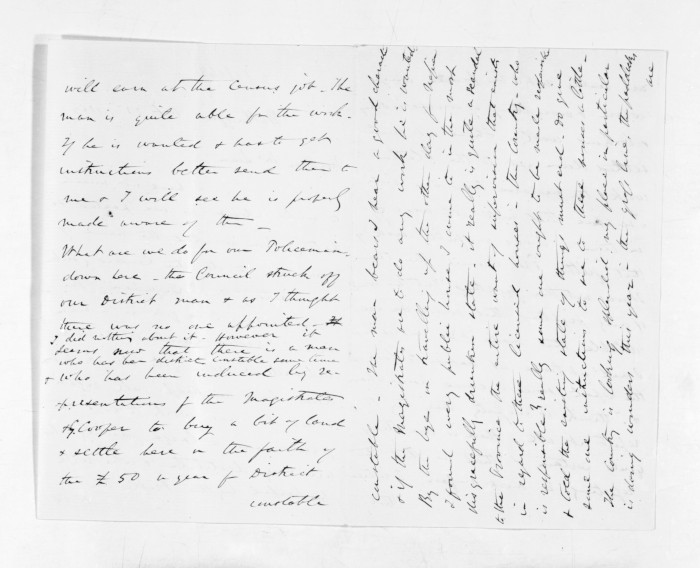 will earn at the Census job. The
man is quite able for the work.
If he is wanted & has to get
instructions better send them to
me & I will see he is properly
made aware of them —
What are we do for our Policeman
down here — the Council struck off
our District man & as I thought
there was no one appointed —
I did nothing about it. However it
seems now that there is a man
who has been district constable some time
& who has been induced by re-
-presentations of the Magistrates
& Cooper to buy a bit of land
& settle here on the faith of
the £50 a year for District
constable
constable — The man bears a good
& if the Magistrates are to do any work he is wanted
By the bye in travelling up the other day
I found every public house I came to in the most
disgracefully drunken state — it really is quite a scandal
to the Province the entire want of supervision that exists
in regard to these licensed houses in the Country — who
is responsible? really some one ought to be made
& told the existing state of things must end — do give
some one instructions to see to these houses a little —
The Country is looking splendid my place in particular
is doing wonders this year — the grass here, the paddocks
are